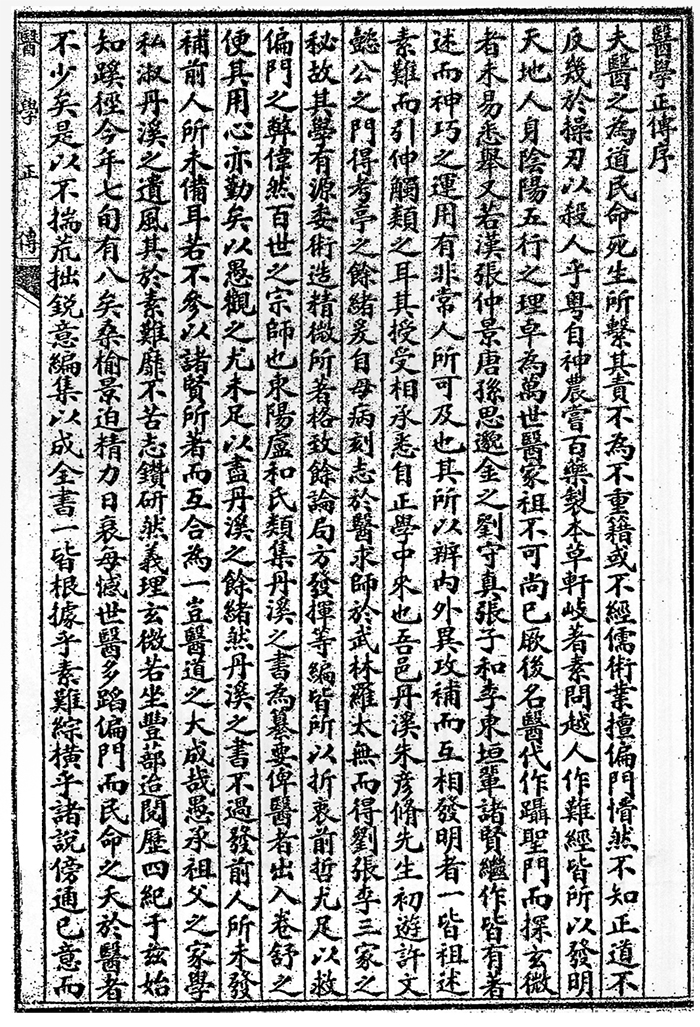 醫學正傳序
夫醫之為道民命死生所繫其責不為不重籍或不經儒術業擅偏門懵然不知正道不
反幾於操刃以殺人乎粤自神農嘗百藥製本草軒岐著素問越人作難經皆所以發明
天地人身陰陽五行之理卓為萬世醫家祖不可尚已厥後名醫代作躡聖門而探玄微
者未易悉舉又若漢張仲景唐孫思邈金之劉守真張子和李東垣輩諸賢繼作皆有著
述而神巧之運用有非常人所可及也其所以辨內外異攻補而互相發明者一皆祖述
素難而引伸觸類之耳其授受相承悉自正學中來也吾邑丹溪朱彥脩先生初遊許文
懿公之門得考亭之餘緒爰自母病刻志於醫求師於武林羅太無而得劉張李三家之
秘故其學有源委術造精微所著格致餘論局方發揮等編皆所以折衷前哲尤足以救
偏門之弊偉然百世之宗師也東陽盧和氏類集丹溪之書為纂要俾醫者出入卷舒之
便其用心亦勤矣以愚觀之尤未足以盡丹溪之餘緒然丹溪之書不過發前人所未發
補前人所未備耳若不參以諸賢所著而互合為一豈醫道之大成哉愚承祖父之家學
私淑丹溪之遺風其於素難靡不苦志鑽研然義理玄微若坐豐蔀迨閱歷四紀于兹始
知蹊徑今年七旬有八矣桑榆景迫精力日衰每憾世醫多蹈偏門而民命之夭於醫者
不少矣是以不揣荒拙銳意編集以成全書一皆根據乎素難綜橫乎諸說傍通已意而
醫學正傳